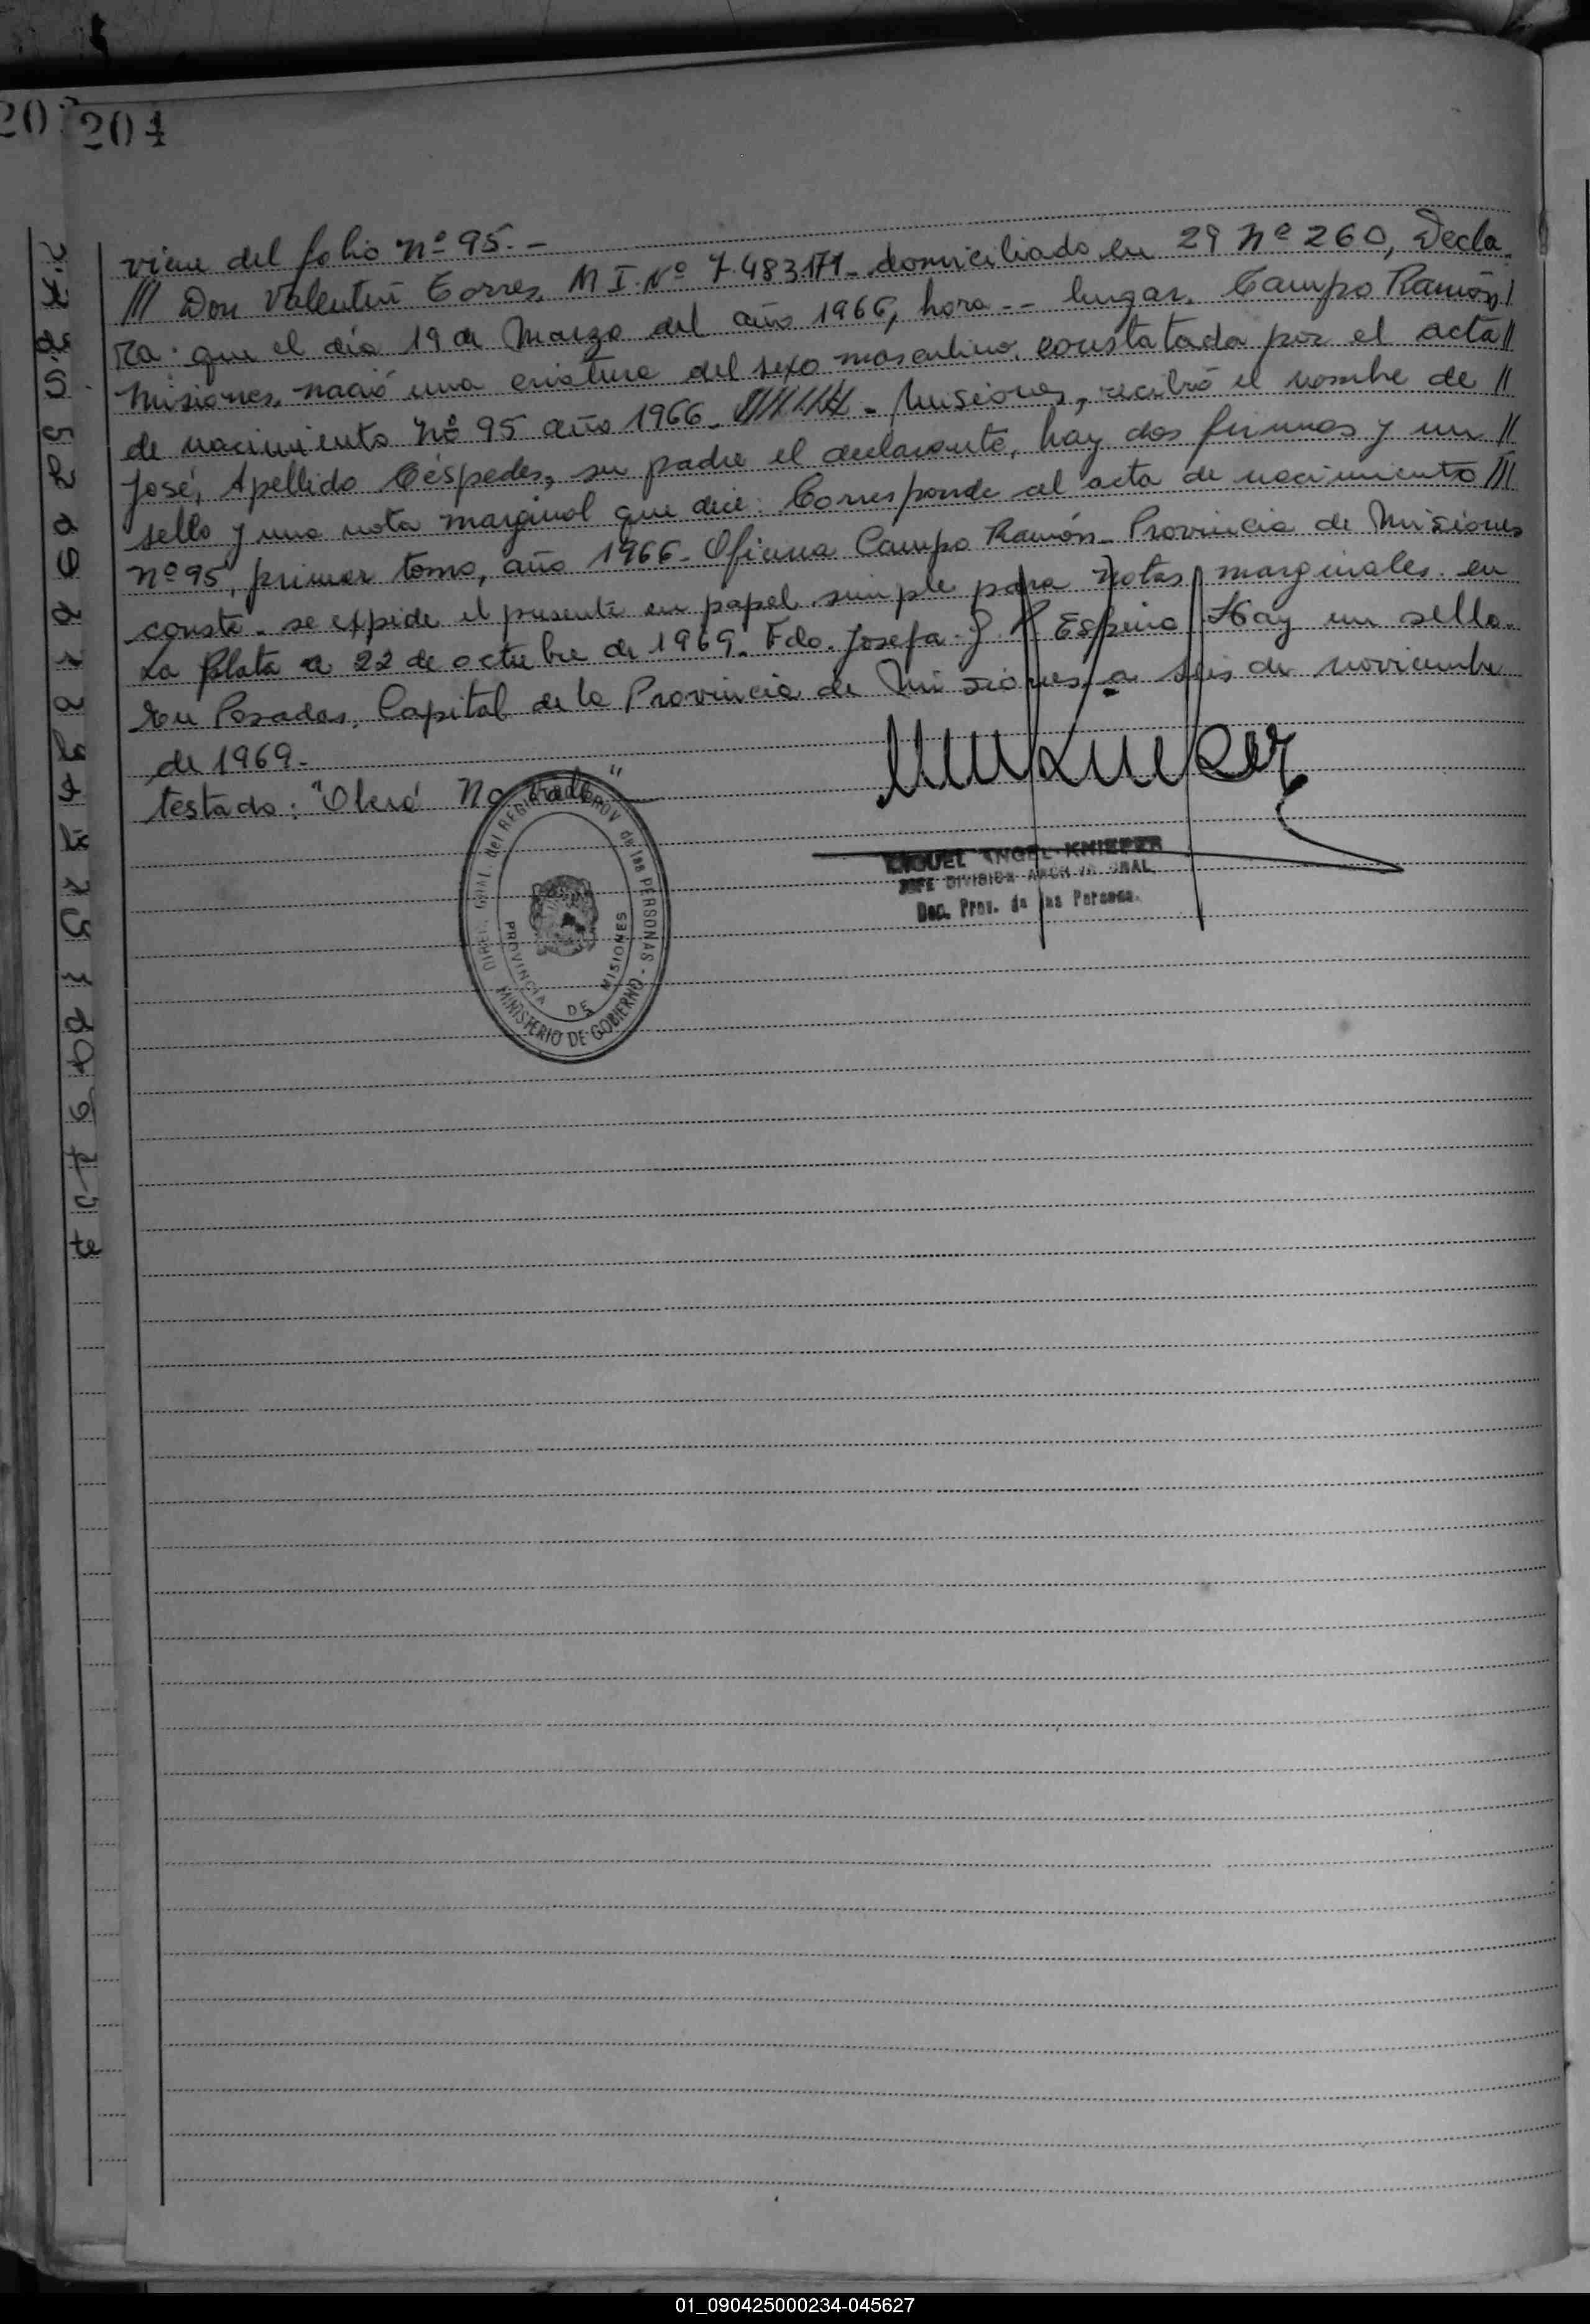 204
viene del folio Nº 95.-
/// Don Valentín Torres, M I. Nº 7.483.171- domiciliado en 29 Nº 260, Decla
ra: que el día 19 de Marzo del año 1966, hora -- lugar, Campo Ramón,/
Misiones, nació una criatura del sexo masculino, constatada por el acta//
de nacimiento Nº 95 año 1966.- Misiones, recibió el nombre de //
José, Apellido Céspedes, su padre el declarante, hay dos firmas y un //
sello y una nota marginal que dice: Corresponde al acta de nacimiento ///
nº 95, primer tomo, año 1966- Oficina Campo Ramón- Provincia de Misiones
conste- se expide el presente en papel simple para Notas marginales. en
La Plata a 22 de octubre de 1969- Fdo. Josefa Espina Hay un sello.-
En Posadas, Capital de la Provincia de Misiones a seis de noviembre
de 1969.-
testado: "Oberá No Vale"
MIGUEL ANGEL KNIEPER
JEFE DIVISION ARCH
Prov. de las Personas.
del REGISTRO PROV de las PERSONAS - MINISTERIO DE GOBIERNO
PROVINCIA DE MISIONES
01_090425000234-045627